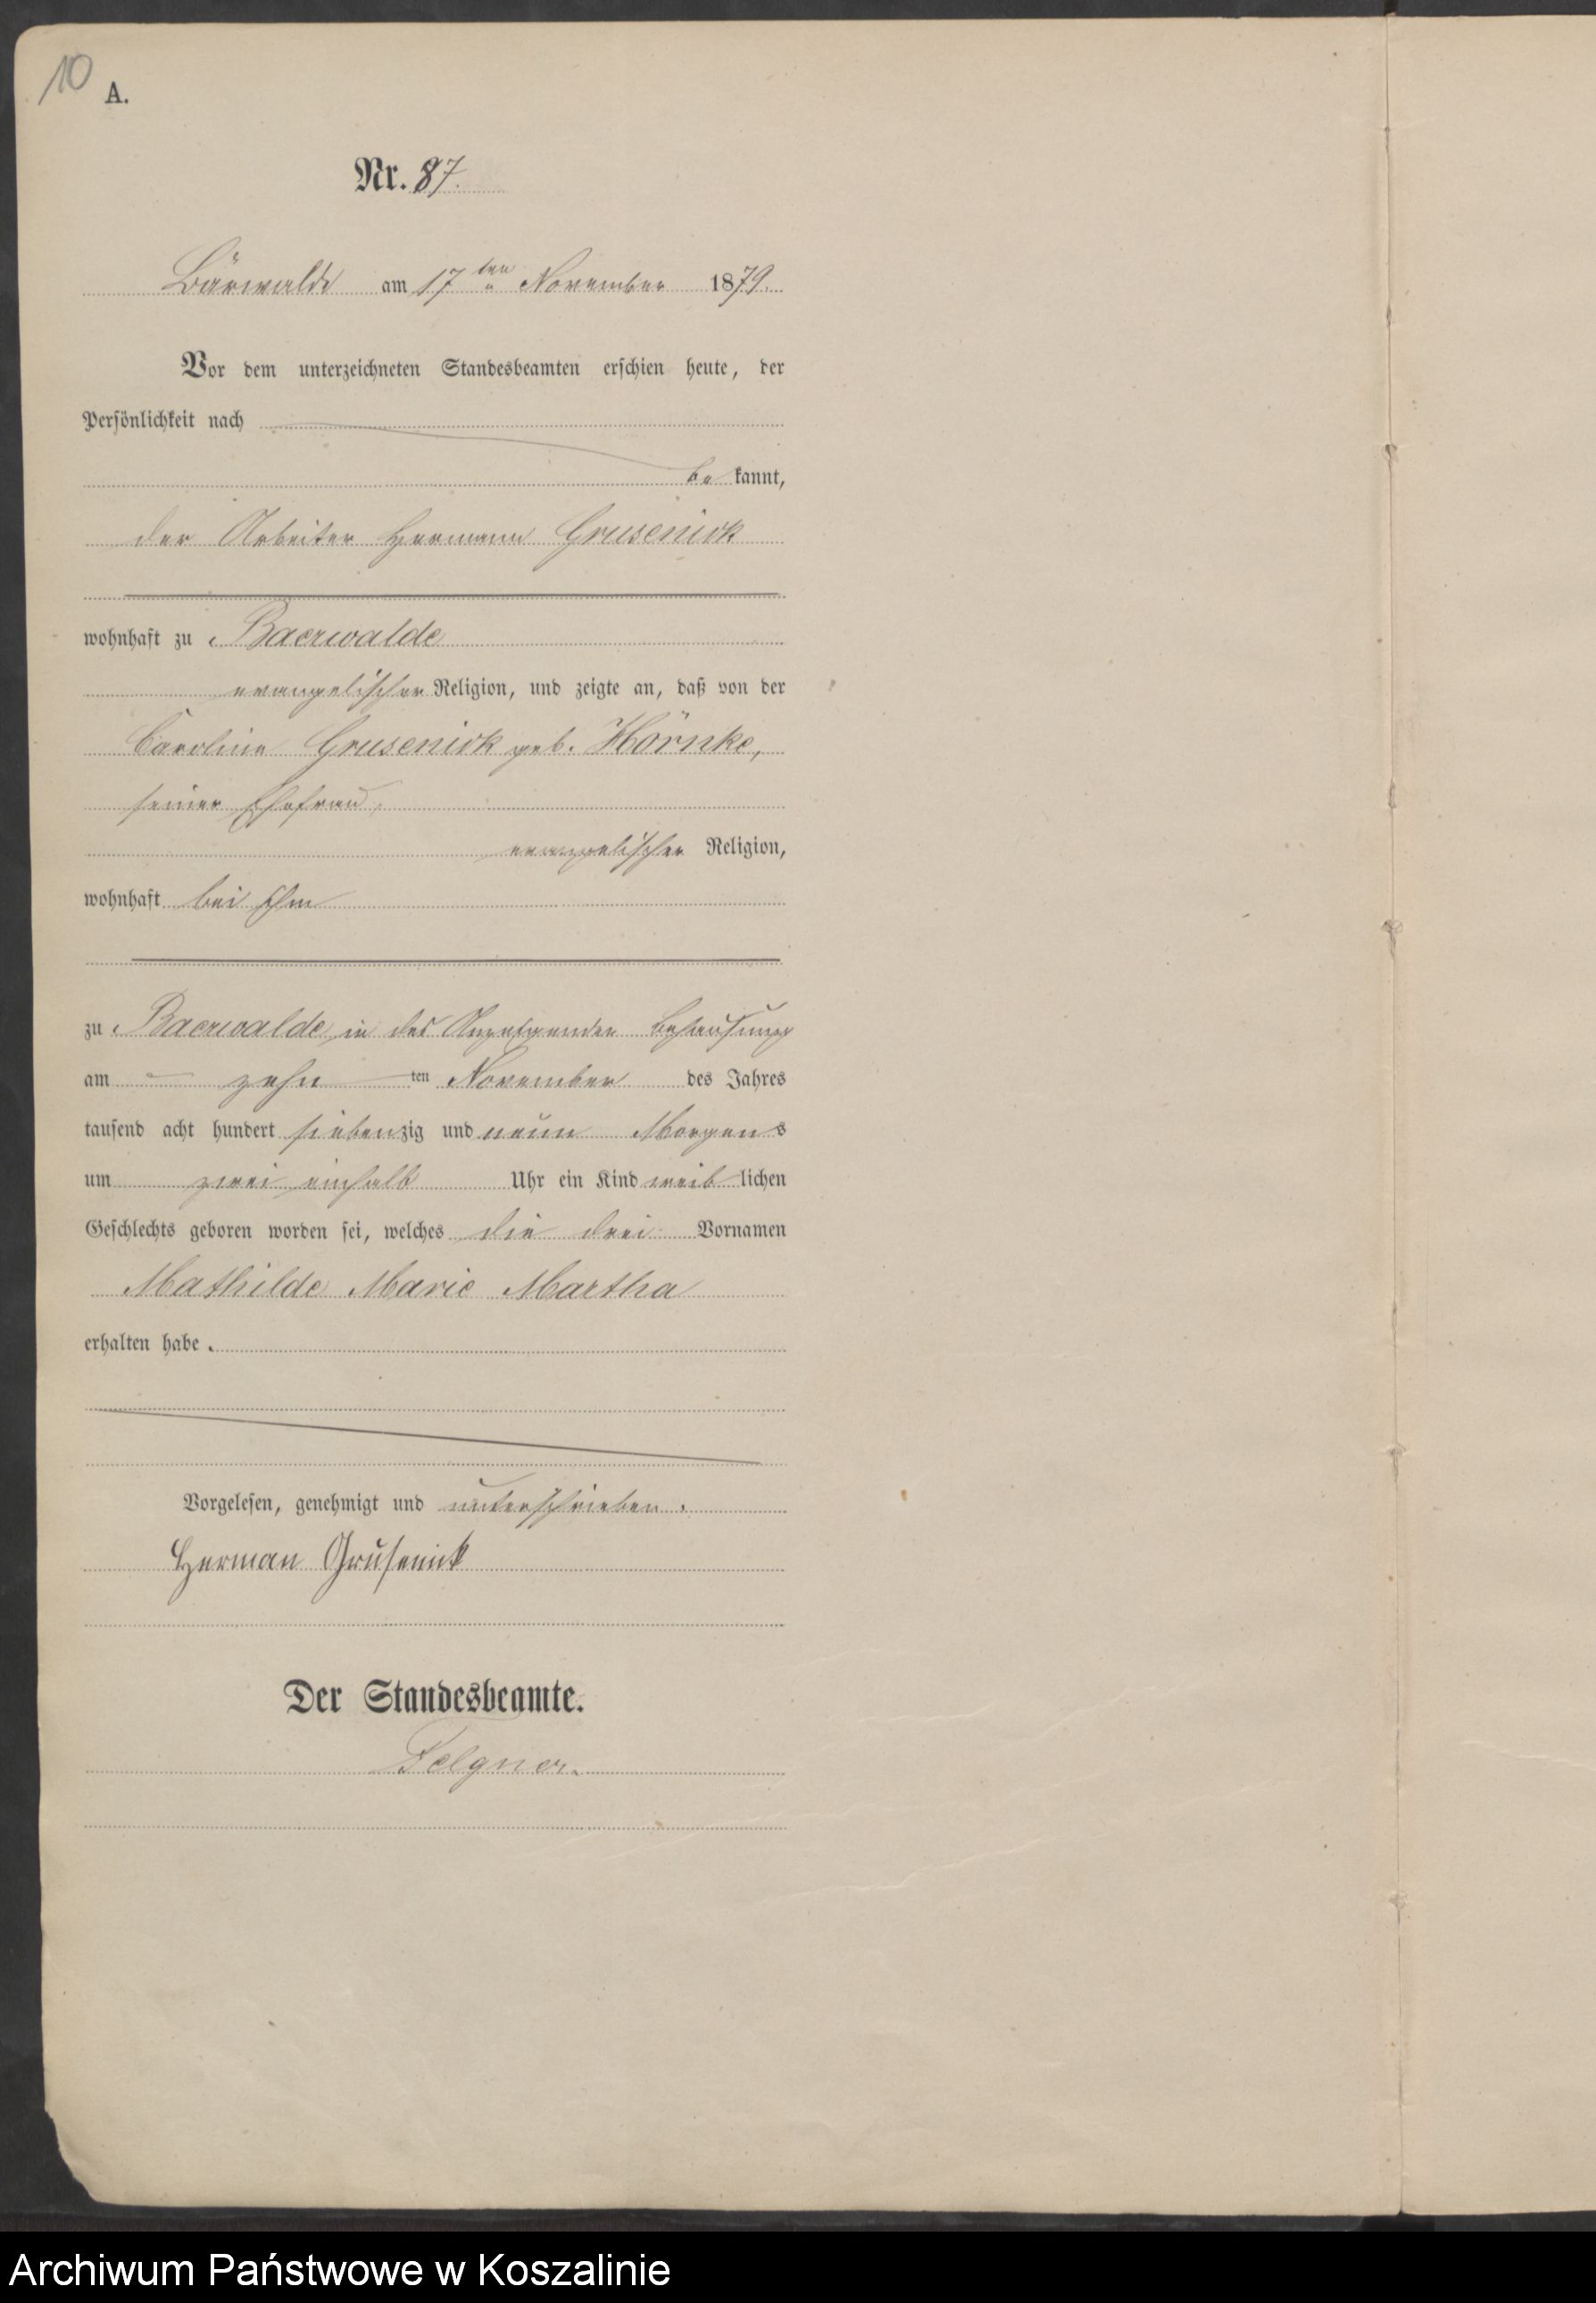 10 A.
Nr. 87.
Bärwalde am 17ten November 1879.
Vor dem unterzeichneten Standesbeamten erschien heute, der
Persönlichkeit nach
be kannt,
der Arbeiter Hermann Grusenick
wohnhaft zu Baerwalde
evangelischer Religion, und zeigte an, daß von der
Caroline Grusenick geb. Hörnke,
seiner Ehefrau,
evangelischer Religion,
wohnhaft bei ihm
zu Baerwalde in des Anzeigenden Behausung
am zehn ten November des Jahres
tausend acht hundert siebenzig und neun Morgens
um zwei einhalb Uhr ein Kind weib lichen
Geschlechts geboren worden sei, welches die drei Vornamen
Mathilde Marie Martha
erhalten habe.
Vorgelesen, genehmigt und unterschrieben.
Herman Grusenick
Der Standesbeamte.
Felgner.
Archiwum Państwowe w Koszalinie